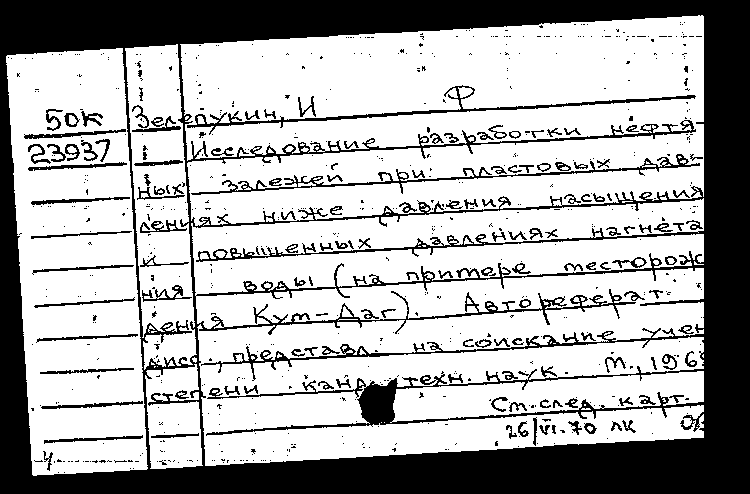 50К Зелепукин, И Ф
23937 Исследование разработки нефтя-
ных залежей при пластовых дав-
лениях ниже давления насыщения
и повышенных давлениях нагнета
ния воды (на примере месторож
дения Кум-Даг). Автореферат
дисс., представл. на соискание учен
степени канд. техн. наук. М., 196
См. след. карт.
26/VI.70 ЛК